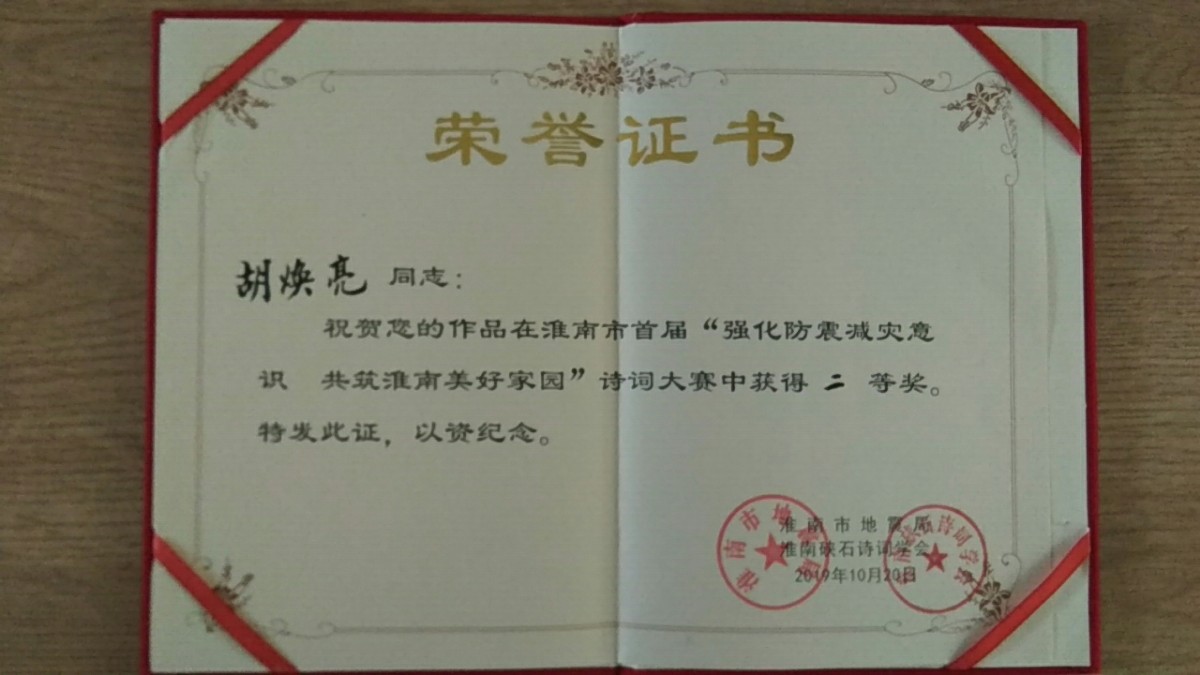 荣誉证书
胡焕亮 同志：
祝贺您的作品在淮南市首届“强化防震减灾意
识 共筑淮南美好家园”诗词大赛中获得 二 等奖。
特发此证，以资纪念。
淮南市地震局
淮南硖石诗词学会
2019年10月20日